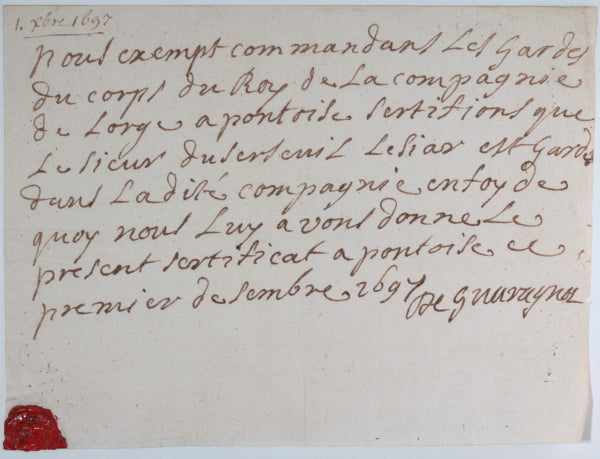 1. xbre 1697
nous exempt commandans Les Gardes
du corps du Roy de La compagnie
de Lorge a pontoise sertifions que
Le sieur duserseuil Lesiar est Garde
dans Ladité compagnie en foy de
quoy nous Luy avons donne Le
present sertificat a pontoise ce
premier desembre 1697